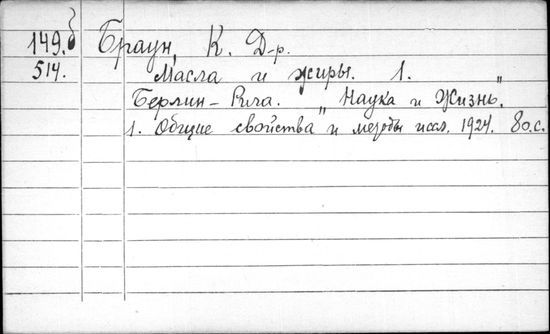 149.б Браун, К. Д-р.
514. Масла и жиры. 1.
Берлин-Рига. „Наука и Жизнь".
1. Общие свойства и методы иссл. 1924. 80.с.